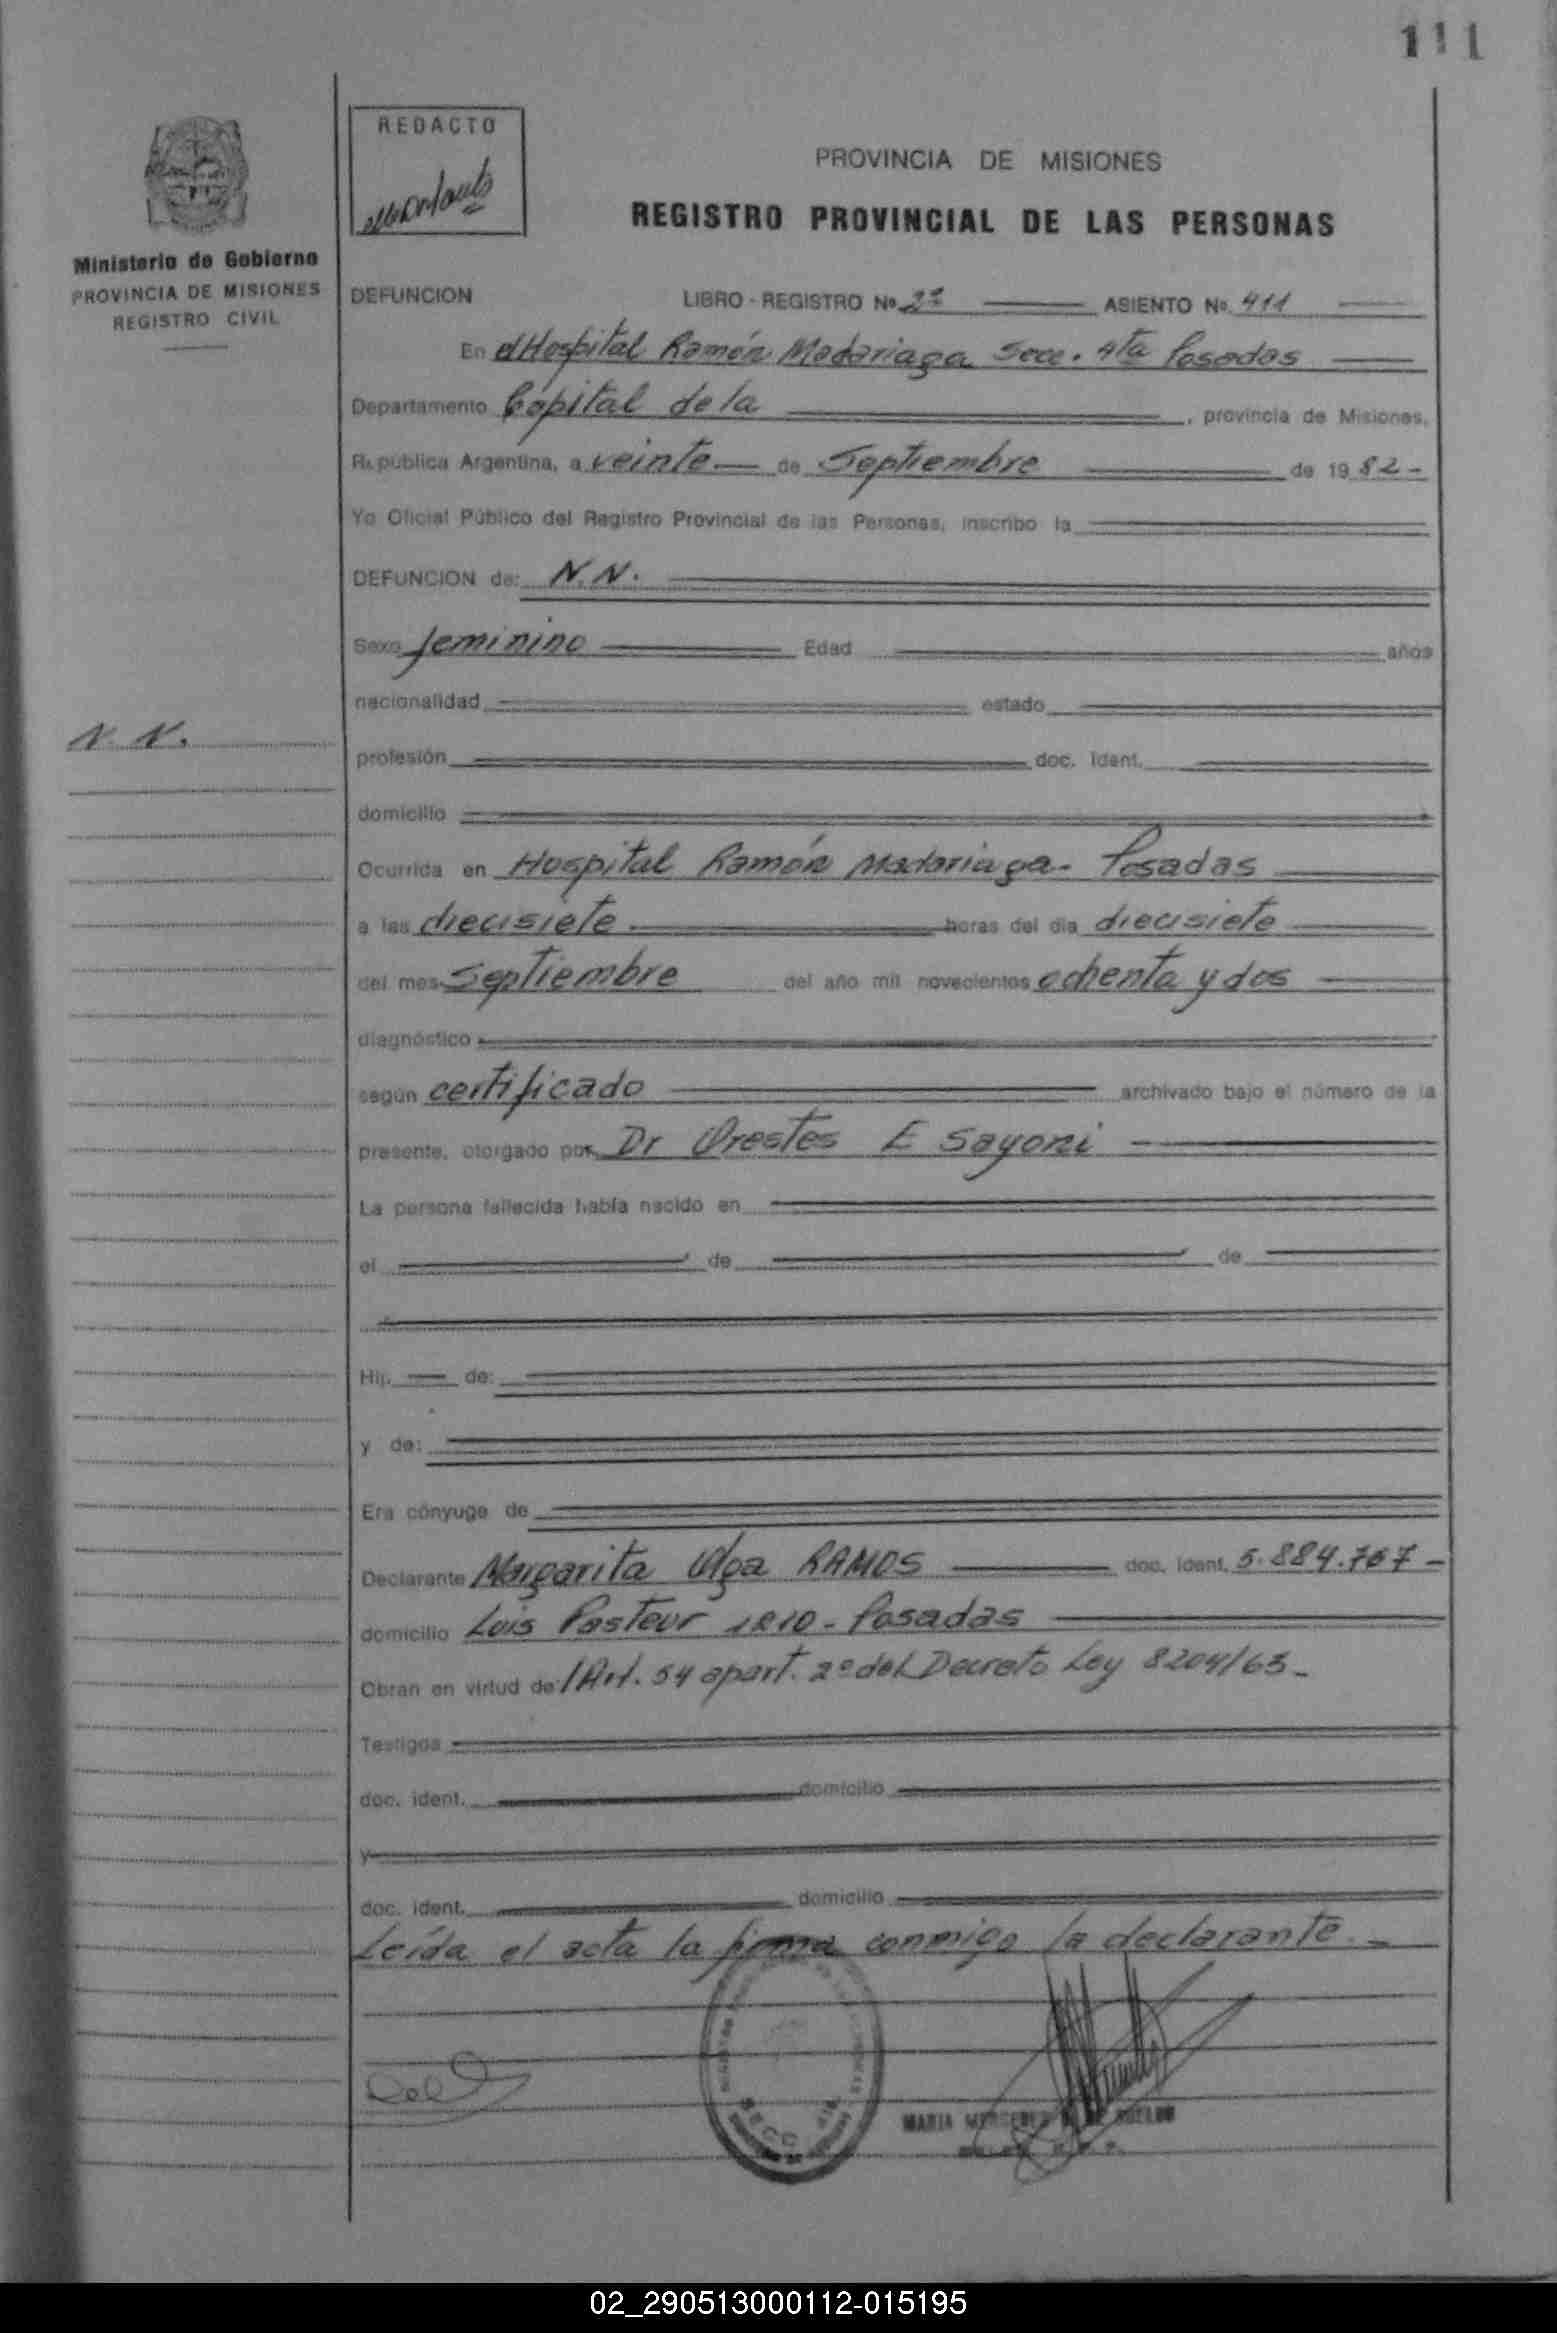 111
REDACTO
PROVINCIA DE MISIONES
REGISTRO PROVINCIAL DE LAS PERSONAS
Ministerio de Gobierno
PROVINCIA DE MISIONES
REGISTRO CIVIL
DEFUNCION LIBRO - REGISTRO No 2º ASIENTO No. 411
En el Hospital Ramón Madariaga Secc. 4ta Posadas
Departamento Capital de la , provincia de Misiones,
República Argentina, a veinte de Septiembre de 1982-
Yo Oficial Público del Registro Provincial de las Personas, inscribo la
DEFUNCION de: N.N.
Sexo feminino Edad años
nacionalidad estado
N. N.
profesión doc. ident.
domicilio
Ocurrida en Hospital Ramón Madariaga- Posadas
a las diecisiete horas del día diecisiete
del mes Septiembre del año mil novecientos ochenta y dos
diagnóstico
según certificado archivado bajo el número de la
presente, otorgado por Dr Orestes E Sayoni
La persona fallecida había nacido en
el de de
Hij de:
y de:
Era cónyuge de
Declarante Margarita Olga RAMOS doc. ident. 5.884.767-
domicilio Luis Pasteur 1810 - Posadas
Obran en virtud de: /Art. 54 apart. 2º del Decreto Ley 8204/63-
Testigos
doc. ident. domicilio
y
doc. ident. domicilio
Leída el acta la firma conmigo la declarante.-
SECC. 4ta
MARIA MERCEDES
02_290513000112-015195